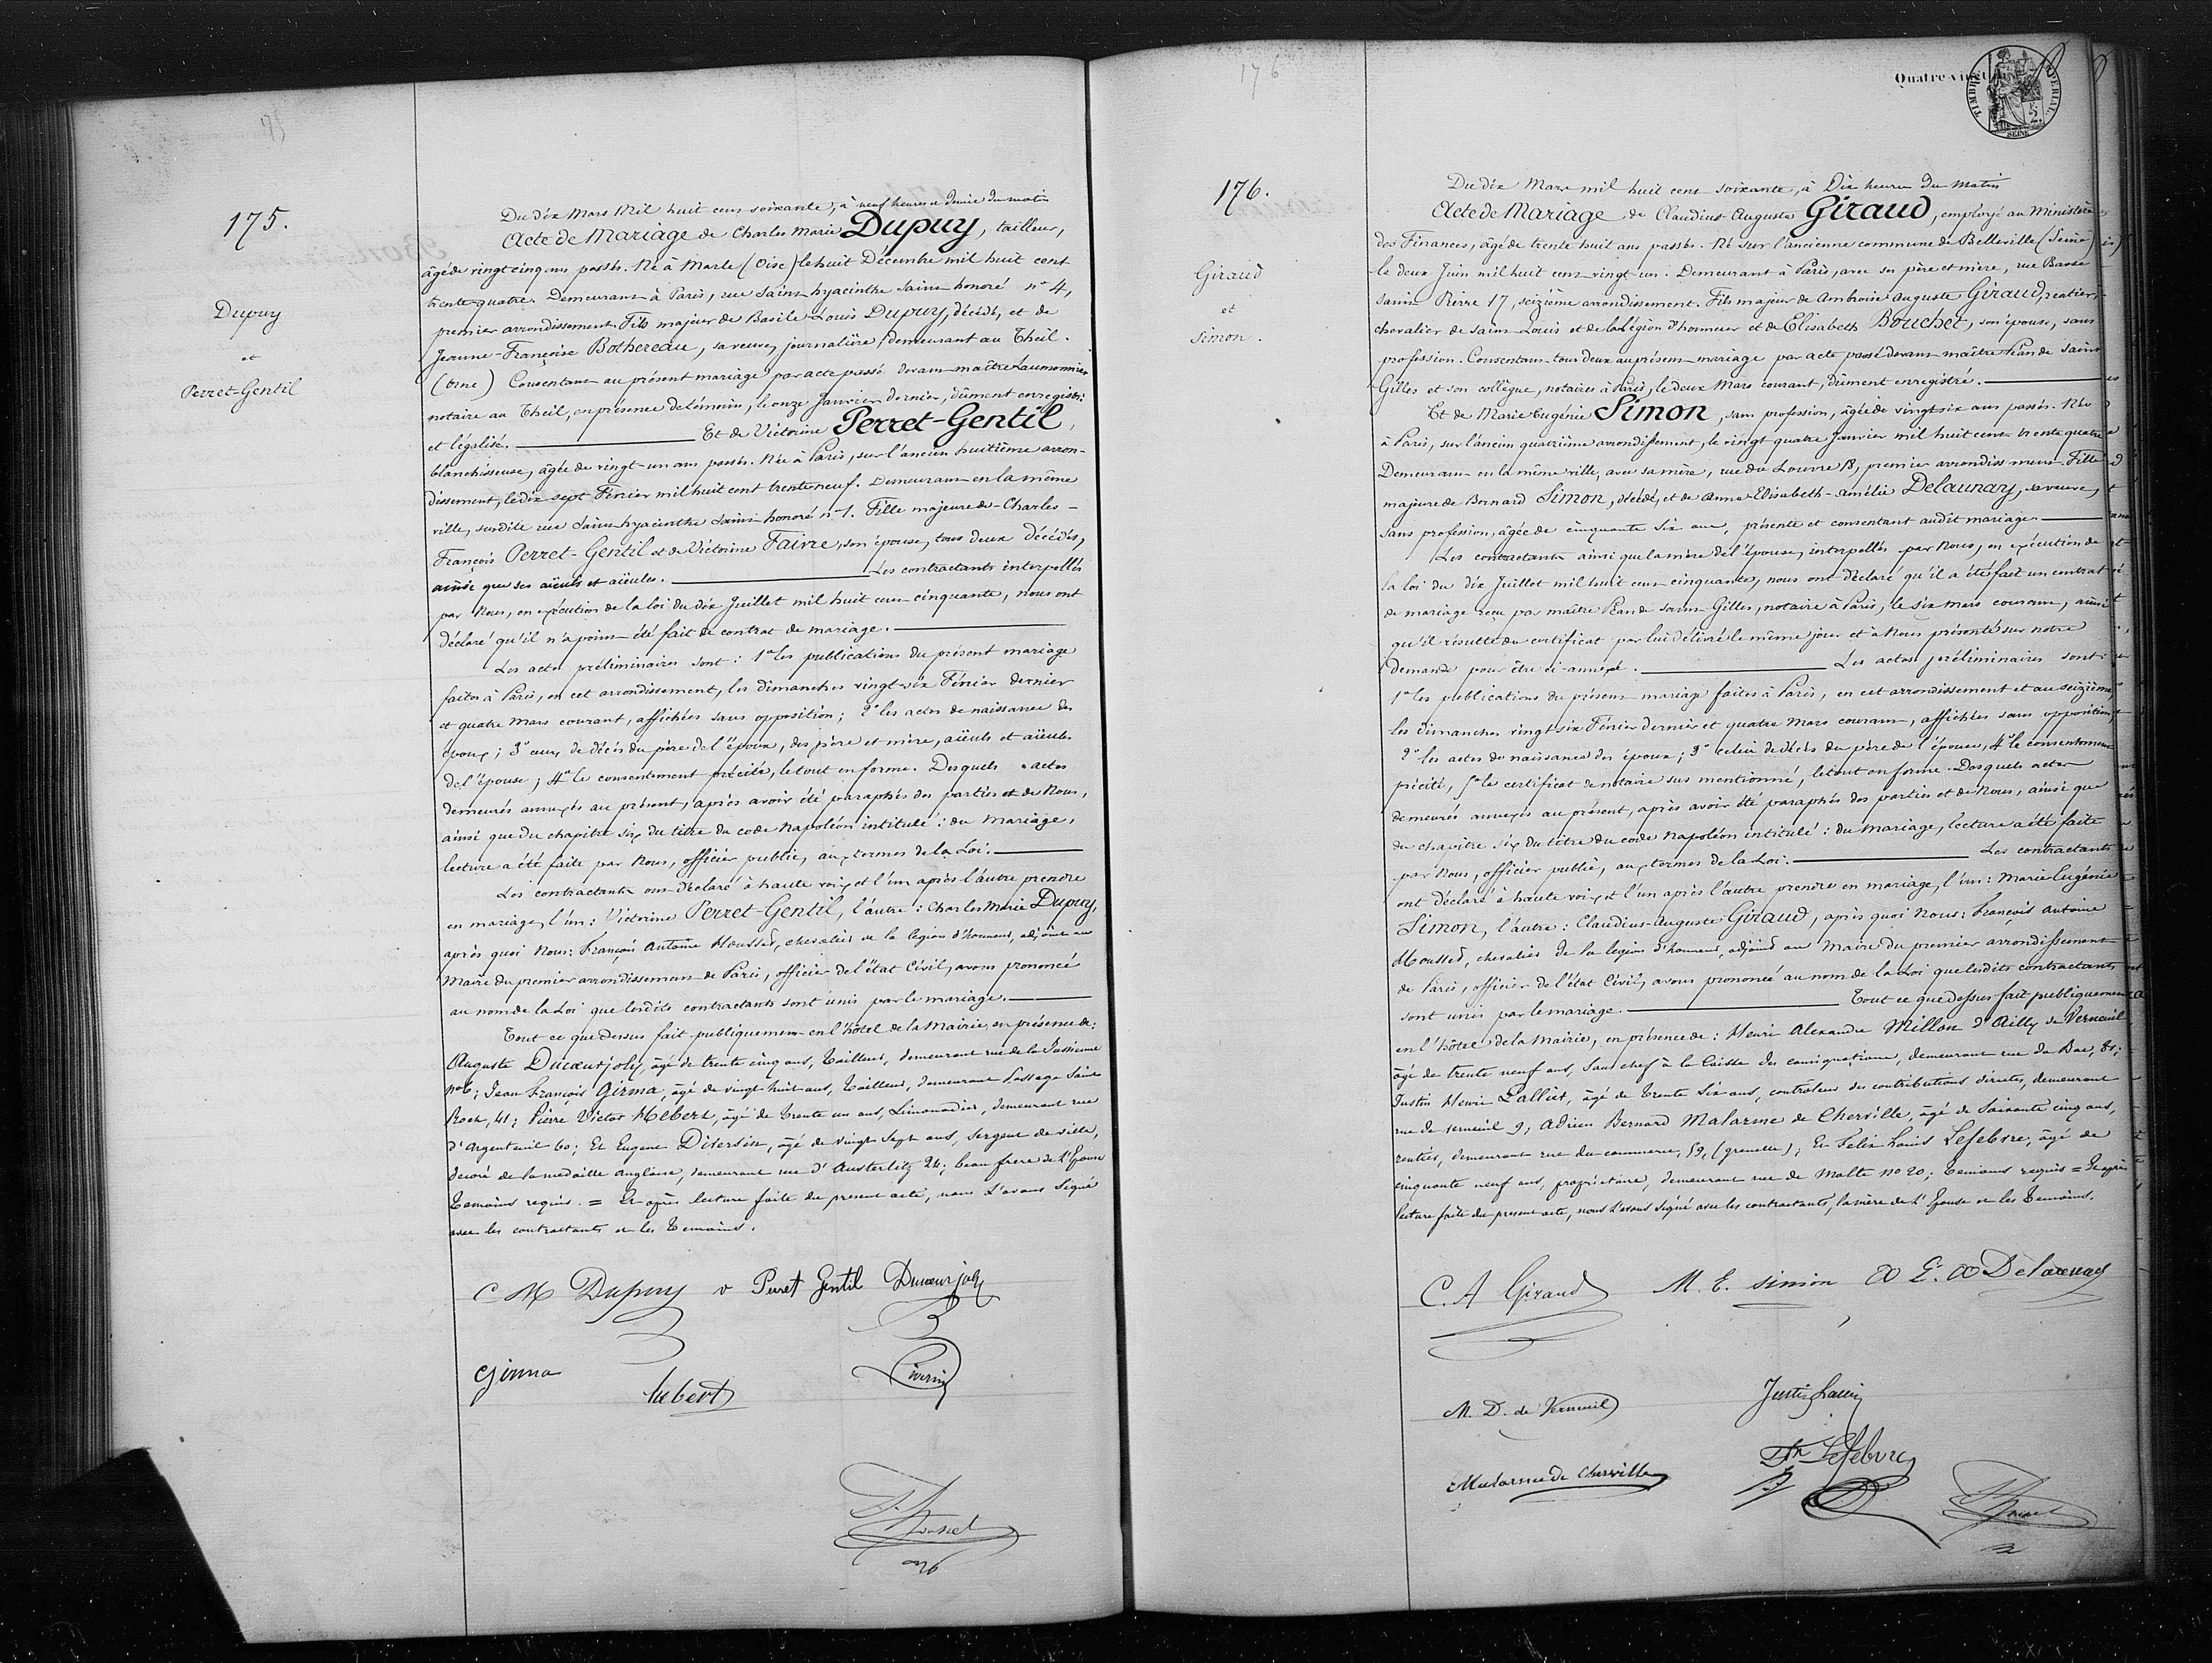 175.
Dupuy
et
Perret-Gentil
Du dix Mars Mil huit cent soixante, à neuf heures et demie du matin
Acte de Mariage de Charles Marie Dupuy, tailleur,
âgé de vingt cinq ans passés. Né à Marle (Oise) le huit Décembre mil huit cent
trente quatre. Demeurant à Paris, rue Saint hyacinthe Saint honoré n° 4,
premier arrondissement. Fils majeur de Basile-Louis Dupuy, décédé, et de
Jeanne-Françoise Bothereau, sa veuve, journalière, demeurant au Theil.
(Orne) Consentant au présent mariage par acte passé devant maître Laumonnier
notaire au Theil, en présence de témoins, le onze Janvier dernier, dûment enregistré
et légalisé. Et de Victorine Perret-Gentil,
blanchisseuse, âgée de vingt-un ans passés. Née à Paris, sur l'ancien huitième arron-
dissement, le dix sept Février mil huit cent trente neuf. Demeurant en la même
ville, susdite rue Saint hyacinthe Saint honoré n° 1. Fille majeure de Charles-
François Perret-Gentil et de Victorine Faivre, son épouse, tous deux décédés,
ainsi que ses aïeuls et aïeules. Les contractants interpellés
par Nous, en exécution de la loi du dix Juillet mil huit cent cinquante, nous ont
déclaré qu'il n'a point été fait de contrat de mariage.
Les actes préliminaires sont : 1° les publications du présent mariage
faites à Paris, en cet arrondissement, les dimanches vingt-six Février dernier
et quatre Mars courant, affichées sans opposition ; 2° les actes de naissance des
époux ; 3° ceux de décès du père de l'époux, des père et mère, aïeuls et aïeules
de l'épouse ; 4° le consentement précité, le tout en forme. Desquels actes
demeurés annexés au présent, après avoir été paraphés des parties et de Nous,
ainsi que du chapitre six du titre du code Napoléon intitulé : du Mariage,
lecture a été faite par Nous, officier public, aux termes de la Loi.
Les contractants ont déclaré à haute voix et l'un après l'autre prendre
en mariage, l'un : Victorine Perret-Gentil, l'autre : Charles Marie Dupuy,
après quoi Nous : François Antoine Moussed, chevalier de la légion d'honneur, adjoint au
Maire du premier arrondissement de Paris, officier de l'état Civil, avons prononcé
au nom de la Loi que lesdits contractants sont unis par le mariage.
Tout ce que dessus fait publiquement en l'hôtel de la Mairie, en présence de :
Auguste Ducoeurjoly, âgé de trente cinq ans, tailleur, demeurant rue de la Jussienne
n° 6 ; Jean François Girma, âgé de vingt huit ans, tailleur, demeurant Passage Saint
Roch, 41 ; Pierre Victor Hebert, âgé de trente un ans, Limonadier, demeurant rue
d'Argenteuil 60 ; Et Eugene Diversin, âgé de vingt sept ans, sergent de ville,
décoré de la médaille anglaise, demeurant rue d'Austerlitz 24 ; beau frere de l'Epoux
Temoins requis. = Et après lecture faite du present acte, nous l'avons signé
avec les contractants et les Temoins.
C M Dupuy v Perret Gentil Ducoeurjoly
Girma
hebert
Diversin
176
176.
Giraud
et
Simon.
Quatre-vingt
TIMBRE IMPERIAL
SEINE
Du dix Mars mil huit cent soixante, à Dix heures du matin
Acte de Mariage de Claudius-Auguste Giraud, employé au Ministère
des Finances, âgé de trente huit ans passés. Né sur l'ancienne commune de Belleville (Seine)
le deux Juin mil huit cent vingt-un. Demeurant à Paris, avec ses père et mère, rue Basse
saint Pierre 17, seizième arrondissement. Fils majeur de Ambroise Auguste Giraud, rentier,
chevalier de Saint Louis et de la Légion d'honneur et de Elisabeth Bouchet, son épouse, sans
profession. Consentant tous deux au présent mariage par acte passé devant maître Péan de Saint
Gilles et son collègue, notaires à Paris, le deux Mars courant, dûment enregistré.
Et de Marie Eugénie Simon, sans profession, âgée de vingt six ans passés. Née
à Paris, sur l'ancien quatrième arrondissement, le vingt quatre Janvier mil huit cent trente quatre
Demeurant en la même ville, avec sa mère, rue du Louvre 18, premier arrondissement. Fille
majeure de Bernard Simon, décédé, et de Anne-Elisabeth-Amélie Delaunay, sa veuve,
sans profession, âgée de cinquante six ans, présente et consentant audit mariage.
Les contractants ainsi que la mère de l'épouse, interpellés par Nous, en exécution de
la loi du dix Juillet mil huit cent cinquante, nous ont déclaré qu'il a été fait un contrat
de mariage reçu par maître Péan de Saint-Gilles, notaire à Paris, le six mars courant, ainsi
qu'il résulte du certificat par lui délivré le même jour et à Nous présenté sur notre
demande pour être ci-annexé. Les actes préliminaires sont :
1° les publications du présent mariage faites à Paris, en cet arrondissement et au seizième,
les dimanches vingt six Février dernier et quatre Mars courant, affichées sans opposition,
2° les actes de naissance des époux ; 3° celui de décès du père de l'épouse, 4° le consentement
précité, 5° le certificat de notaire sus mentionné, le tout en forme. Desquels actes
demeurés annexés au présent, après avoir été paraphés des parties et de Nous, ainsi que
du chapitre six du titre du code Napoléon intitulé : du Mariage, lecture a été faite
par Nous, officier public, aux termes de la Loi. Les contractants
ont déclaré à haute voix et l'un après l'autre prendre en mariage, l'un : Marie Eugénie
Simon, l'autre : Claudius-Auguste Giraud, après quoi Nous : François Antoine
Moussed, chevalier de la légion d'honneur, adjoint au Maire du premier arrondissement
de Paris, officier de l'état Civil, avons prononcé au nom de la Loi que lesdits contractants
sont unis par le mariage. Tout ce que dessus fait publiquement
en l'hôtel de la Mairie, en présence de : Henri Alexandre Millon d'Ailly de Verneuil
âgé de trente neuf ans, sous chef à la Caisse des consignations, demeurant rue du Bac, 81 ;
Justin Henri Lallier, âgé de trente six ans, controleur des contributions directes, demeurant
rue de verneuil 9 ; Adrien Bernard Malarme de Cherville, âgé de soixante cinq ans,
rentier, demeurant rue du commerce, 59, (grenelle) ; Et Felix Louis Lefebvre, âgé de
cinquante neuf ans, propriétaire, demeurant rue de Malte no 20 ; temoins requis = Et après
lecture faite du present acte, nous l'avons signé avec les contractants, la mère de l'Epouse et les Temoins.
C. A Giraud M. E. simon A E. A Delaunay
M. D. de Verneuil
Malarme de Cherville
Lefebvre